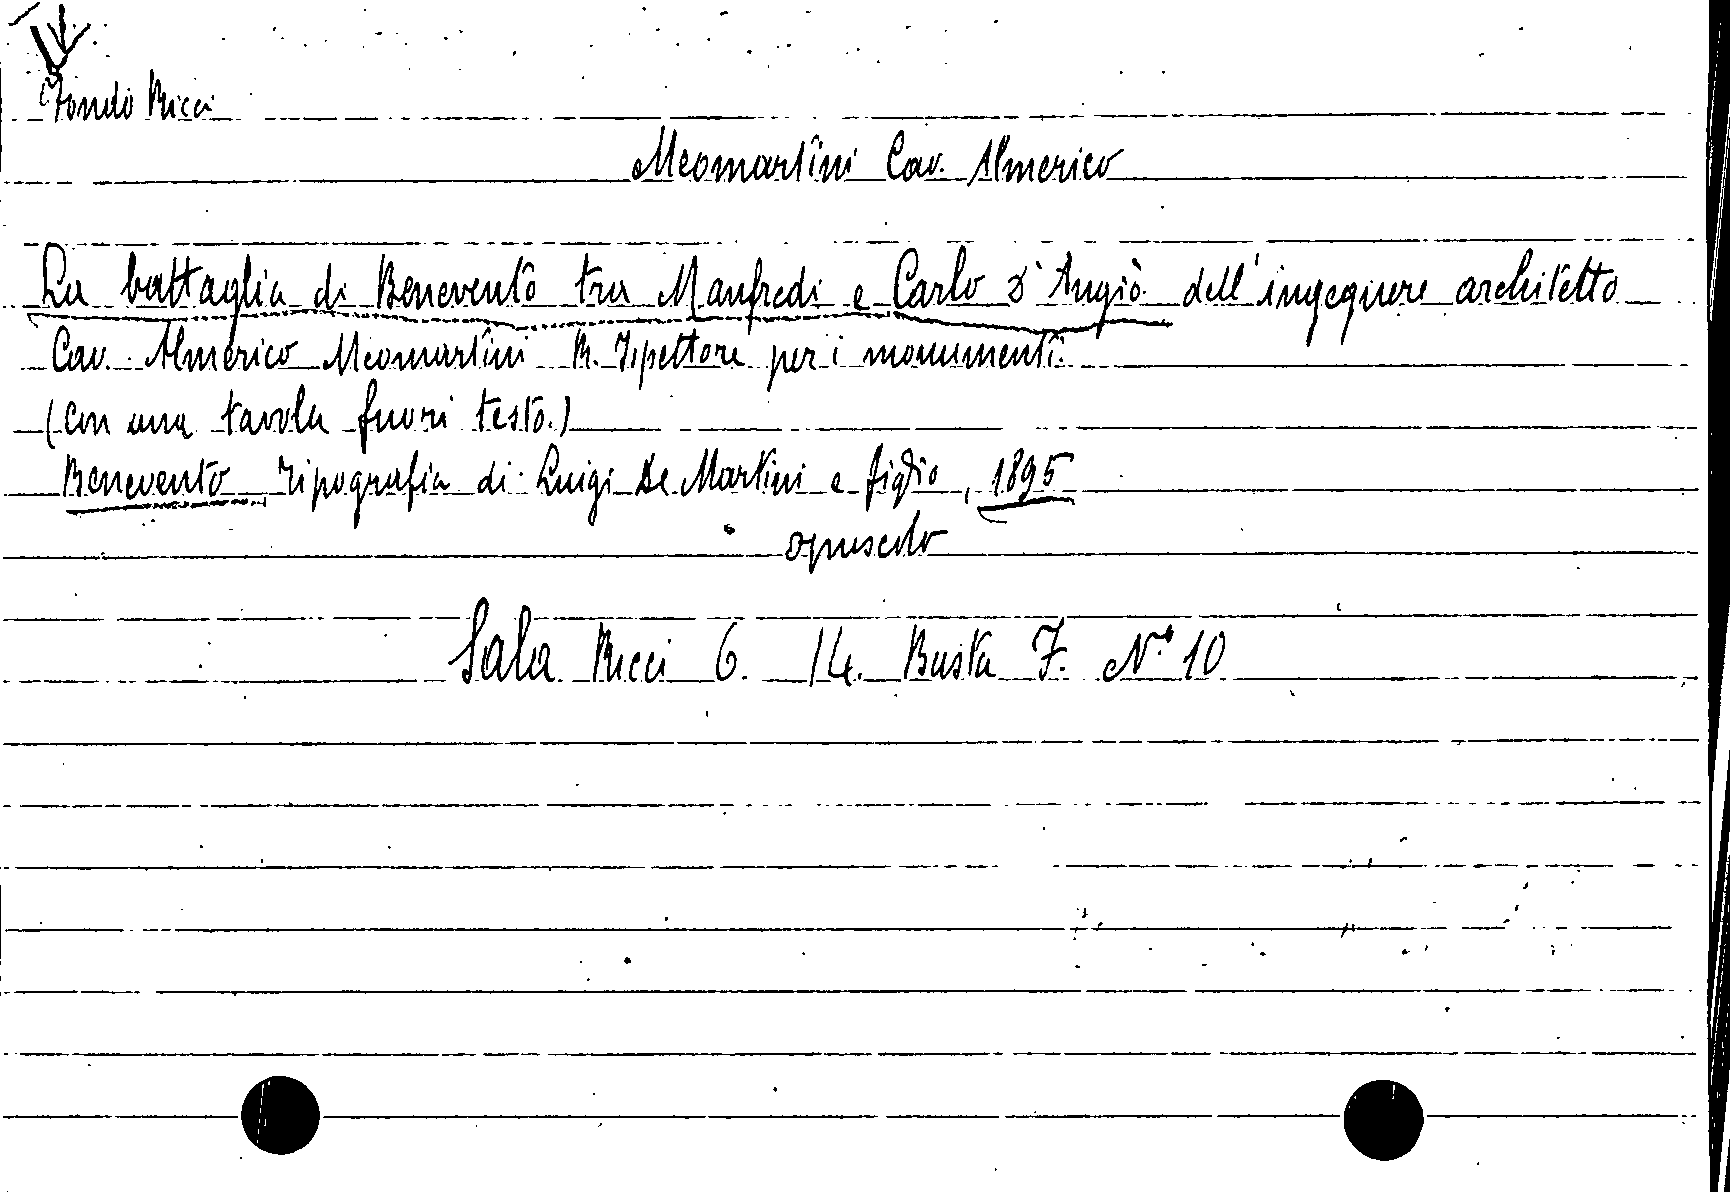 Fondo Ricci
Meomartini Cav. Almerico
La battaglia di Benevento tra Manfredi e Carlo D'Angiò dell'ingegnere architetto
Cav. Almerico Meomartini R. Ispettore per i monumenti.
(con una tavola fuori testo.)
Benevento, Tipografia di Luigi De Martini e figlio, 1895
opuscolo
Sala Ricci 6. 14. Busta 7. N.° 10